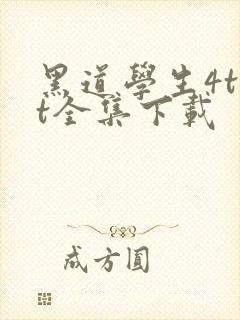 黑道學生4t
t全集下載
成方圓